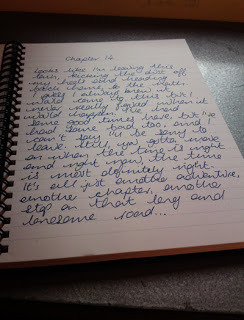 Chapter 16
Looks like I'm leaving this
town, kicking the dust off
my heels and heading
back home, to the open
I always knew it
would come to this but I
never really figured when it
would happen. I've had
some good times here, but I've
had some bad too, and I
can't say I'll be sorry to
leave. Still, you gotta move
on when the time is right
and right now, the time
is most definitely right.
It's all just another adventure,
another chapter, another
step on that long and
lonesome road...